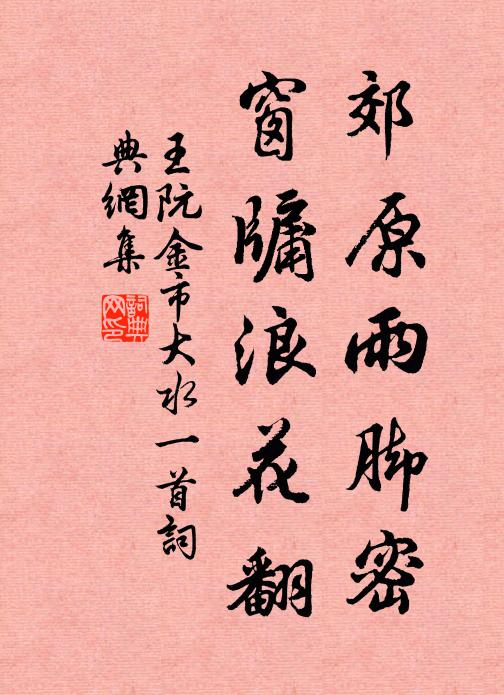 郊原雨脚密
窗牖浪花翻
王阮金市大水一首詞
典網集
詞典
网印